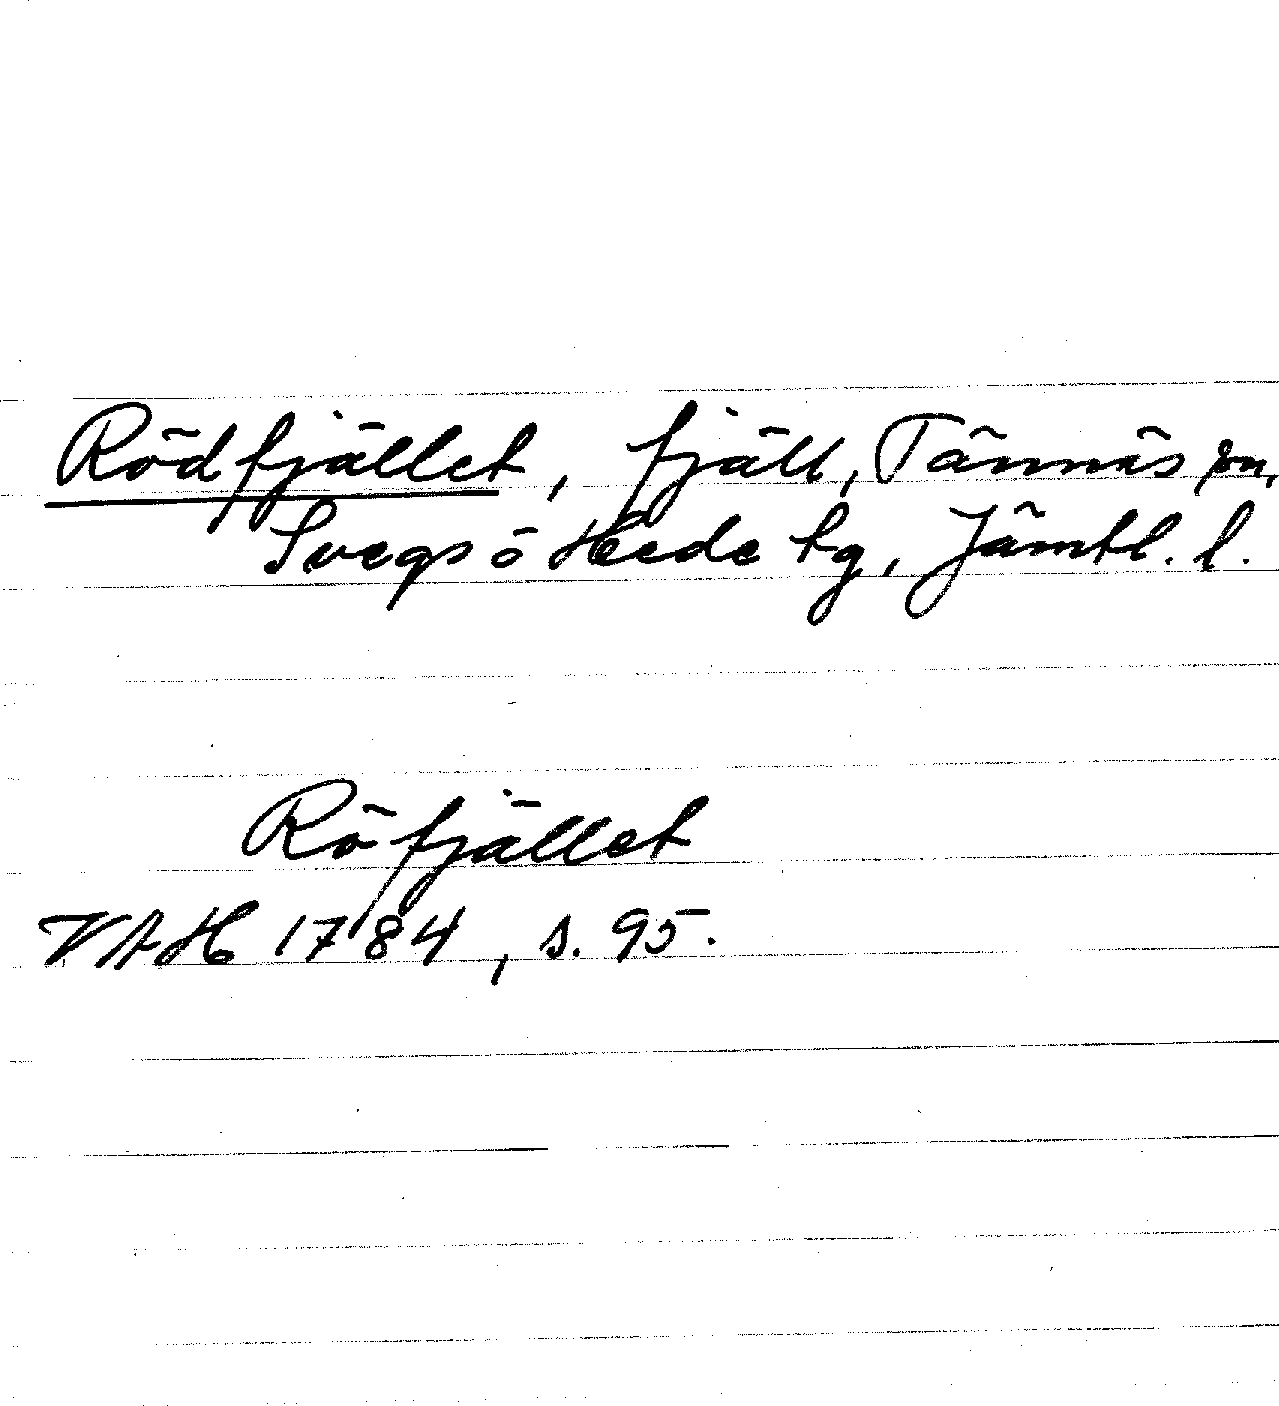 Rödfjället, fjäll, Tännäs sn,
Svegs o Hede tg, Jämtl. l.
Röfjället
VAH 1784, s. 95.